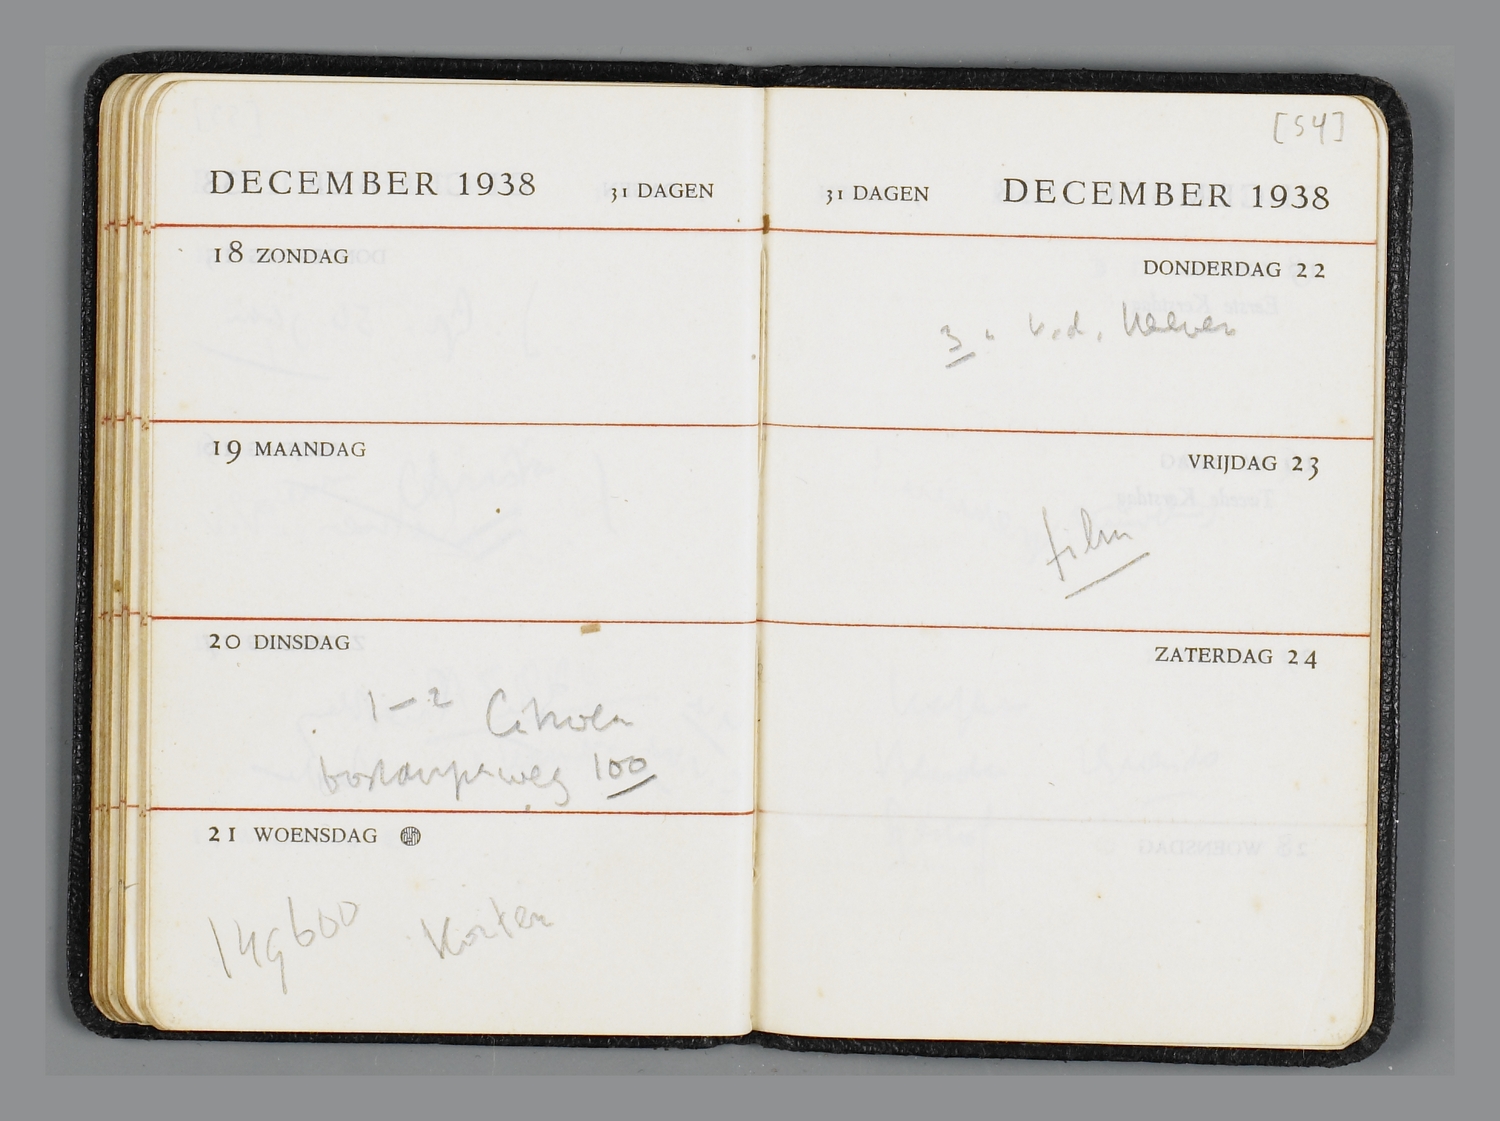 DECEMBER 1938 31 DAGEN
18 ZONDAG
19 MAANDAG
20 DINSDAG
1-2 Citroen
100
21 WOENSDAG
149600 Korten
[54]
31 DAGEN DECEMBER 1938
DONDERDAG 22
3 u v.d.
VRIJDAG 23
film
ZATERDAG 24